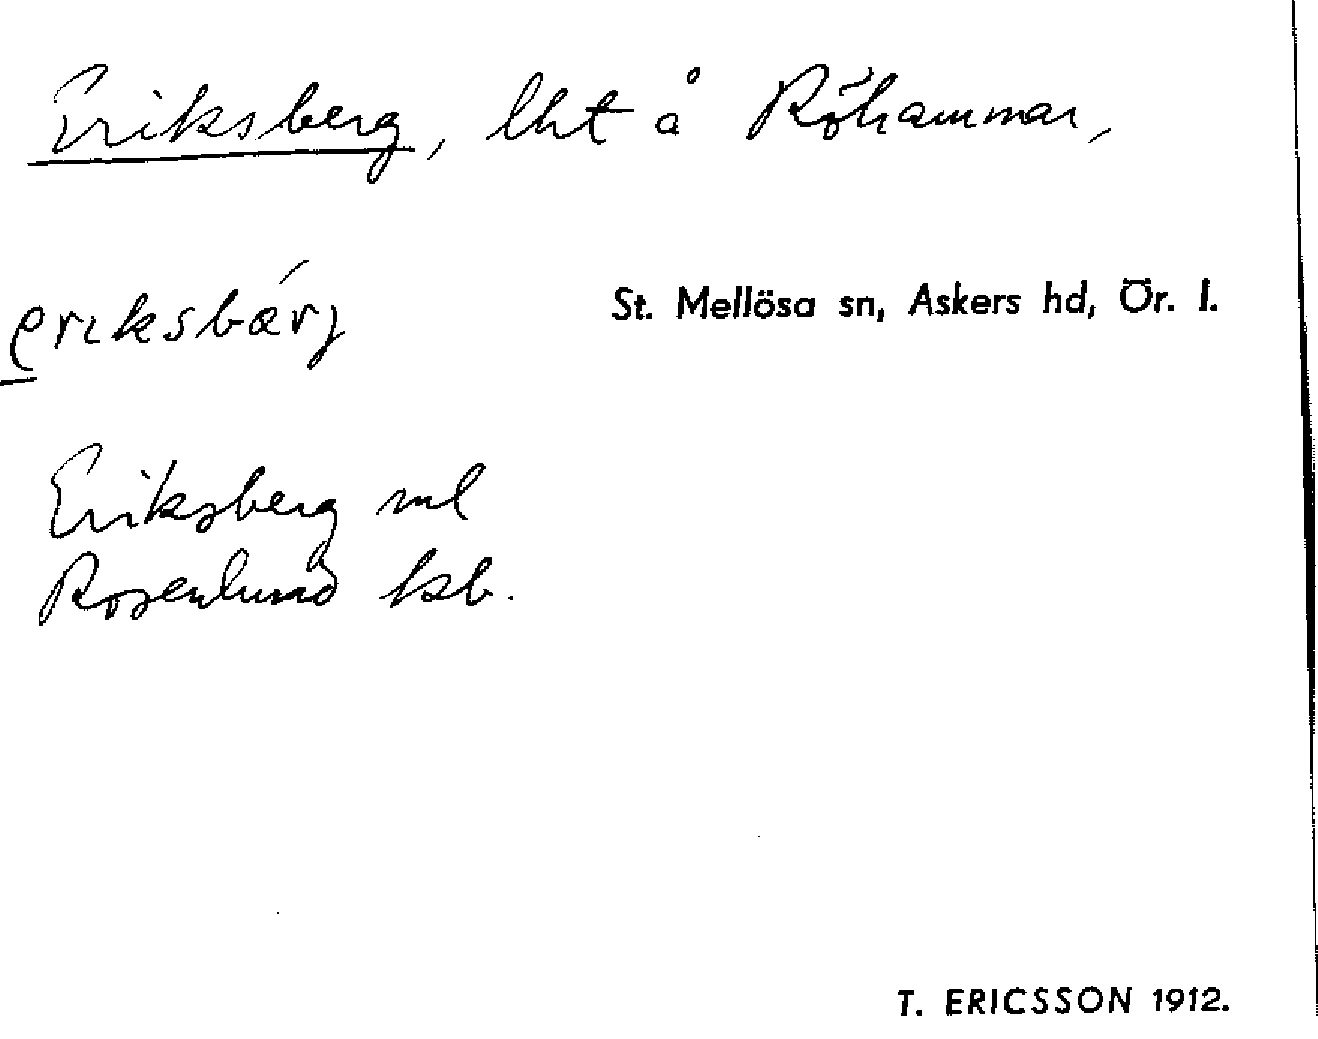 Eriksberg, lht å Röhammar,
eriksbárj
St. Mellösa sn, Askers hd, Ör. l.
Eriksberg ml
Rosenlund kb.
T. ERICSSON 1912.